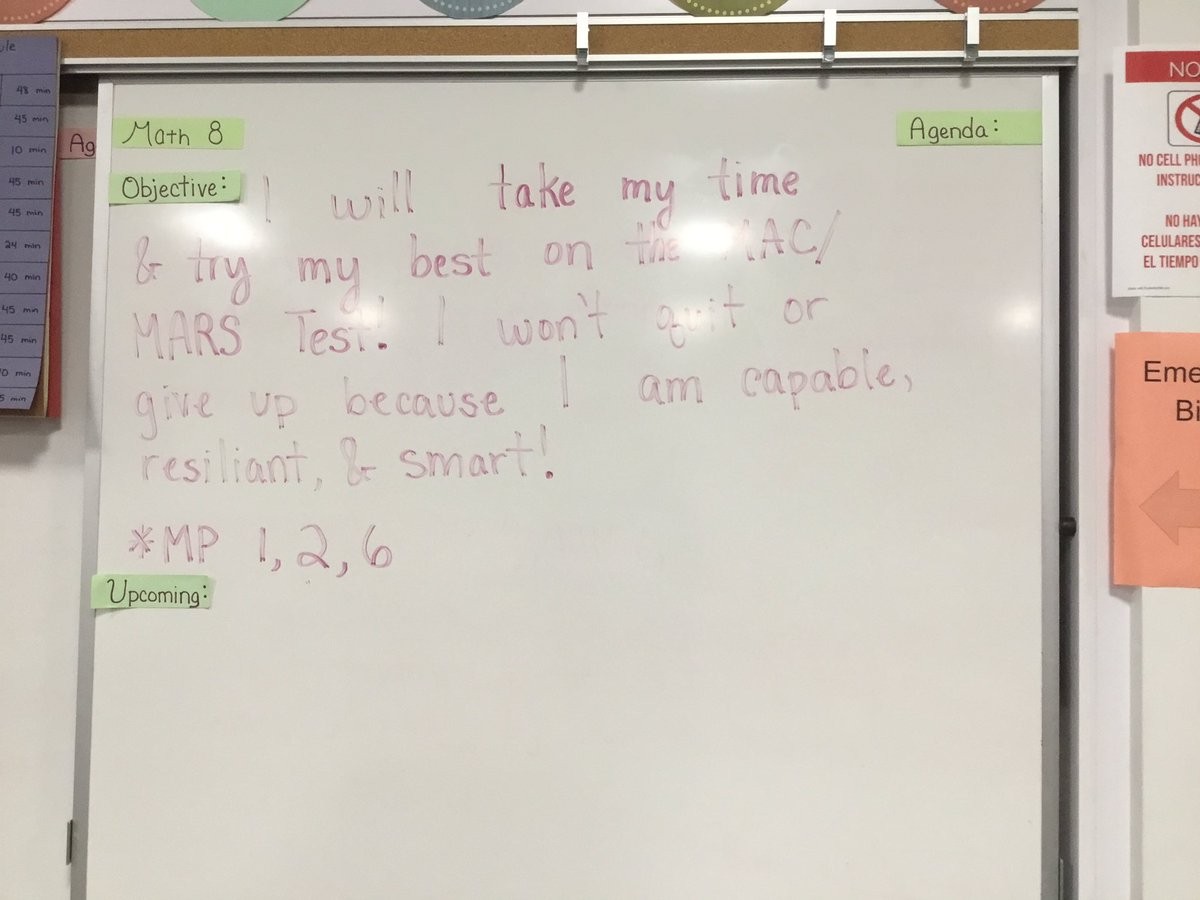 ule
48 min
45 min
10 min
45 min
45 min
24 min
40 min
45 min
45 min
0 min
5 min
Ag
Math 8
Agenda:
Objective: I will take my time
& try my best on the MAC/
MARS Test! I won't quit or
give up because I am capable,
resiliant, & smart!
*MP 1, 2, 6
Upcoming:
NO
NO CELL PH
INSTRUC
NO HAY
CELULARES
EL TIEMPO
Eme
Bi